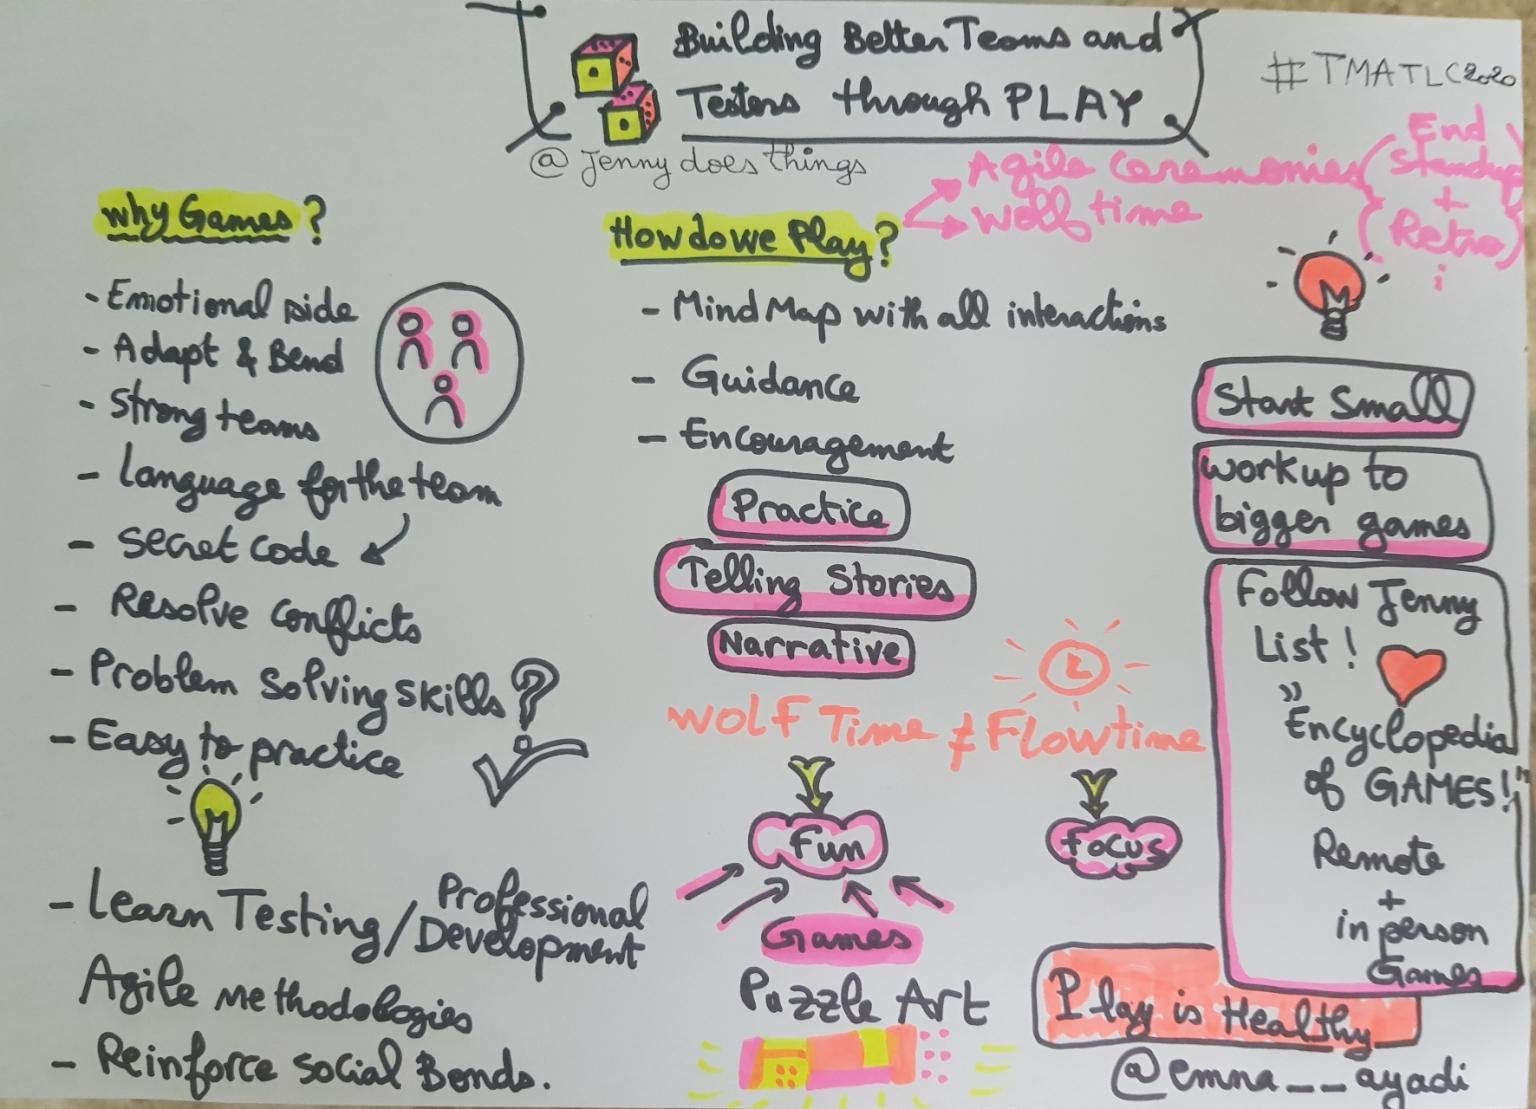 Building Better Teams and
Testers through PLAY
@jennydoesthings
#TMATLC2020
why Games?
- Emotional side
- Adapt & Bend
- Strong teams
- Language for the team
- Secret code
- Resolve conflicts
- Problem solving skills
- Easy to practice
- Learn Testing / Professional Development
Agile methodologies
- Reinforce social Bonds.
How do we Play?
Agile ceremonies (End
Standup
+
Retro)
Wolf time
- Mind Map with all interactions
- Guidance
- Encouragement
Practice
Telling Stories
Narrative
Wolf Time ≠ Flowtime
Fun
focus
Games
Puzzle Art
Start Small
work up to
bigger games
Follow Jenny
List!
"Encyclopedia
of GAMES!"
Remote
+
in person
Games
Play is Healthy
@emna__ayadi